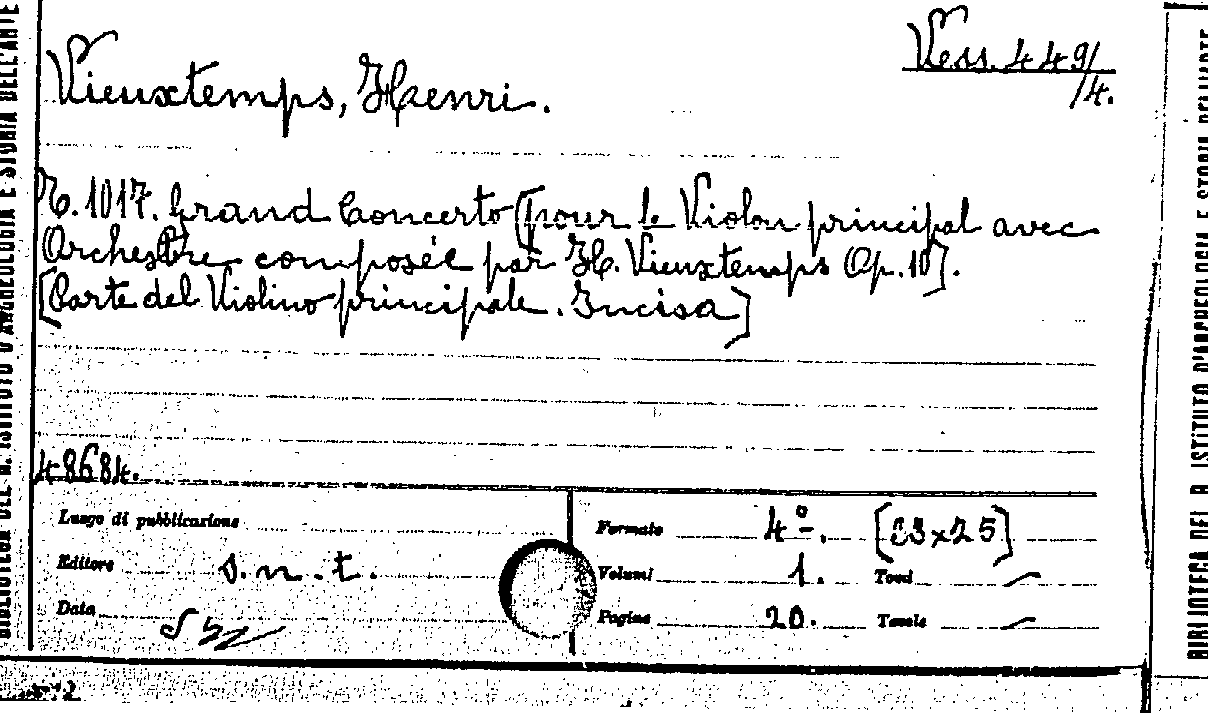 BIBLIOTECA DEL R. ISTITUTO D'ARCHEOLOGIA E STORIA DELL'ARTE
Vess. 449/
/4.
Vieuxtemps, Henri.
N. 1017. Grand Concerto [pour le Violon principal avec
Orchestre composée par H. Vieuxtemps Op. 10].
[Parte del Violino principale. Incisa]
48684.
Luogo di pubblicazione
Formato 4º. [23x25]
Editore s.n.t.
Volumi 1. Tomi —
Data
Pagine 20. Tavole —
BIBLIOTECA DEL R. ISTITUTO D'ARCHEOLOGIA E STORIA DELL'ARTE